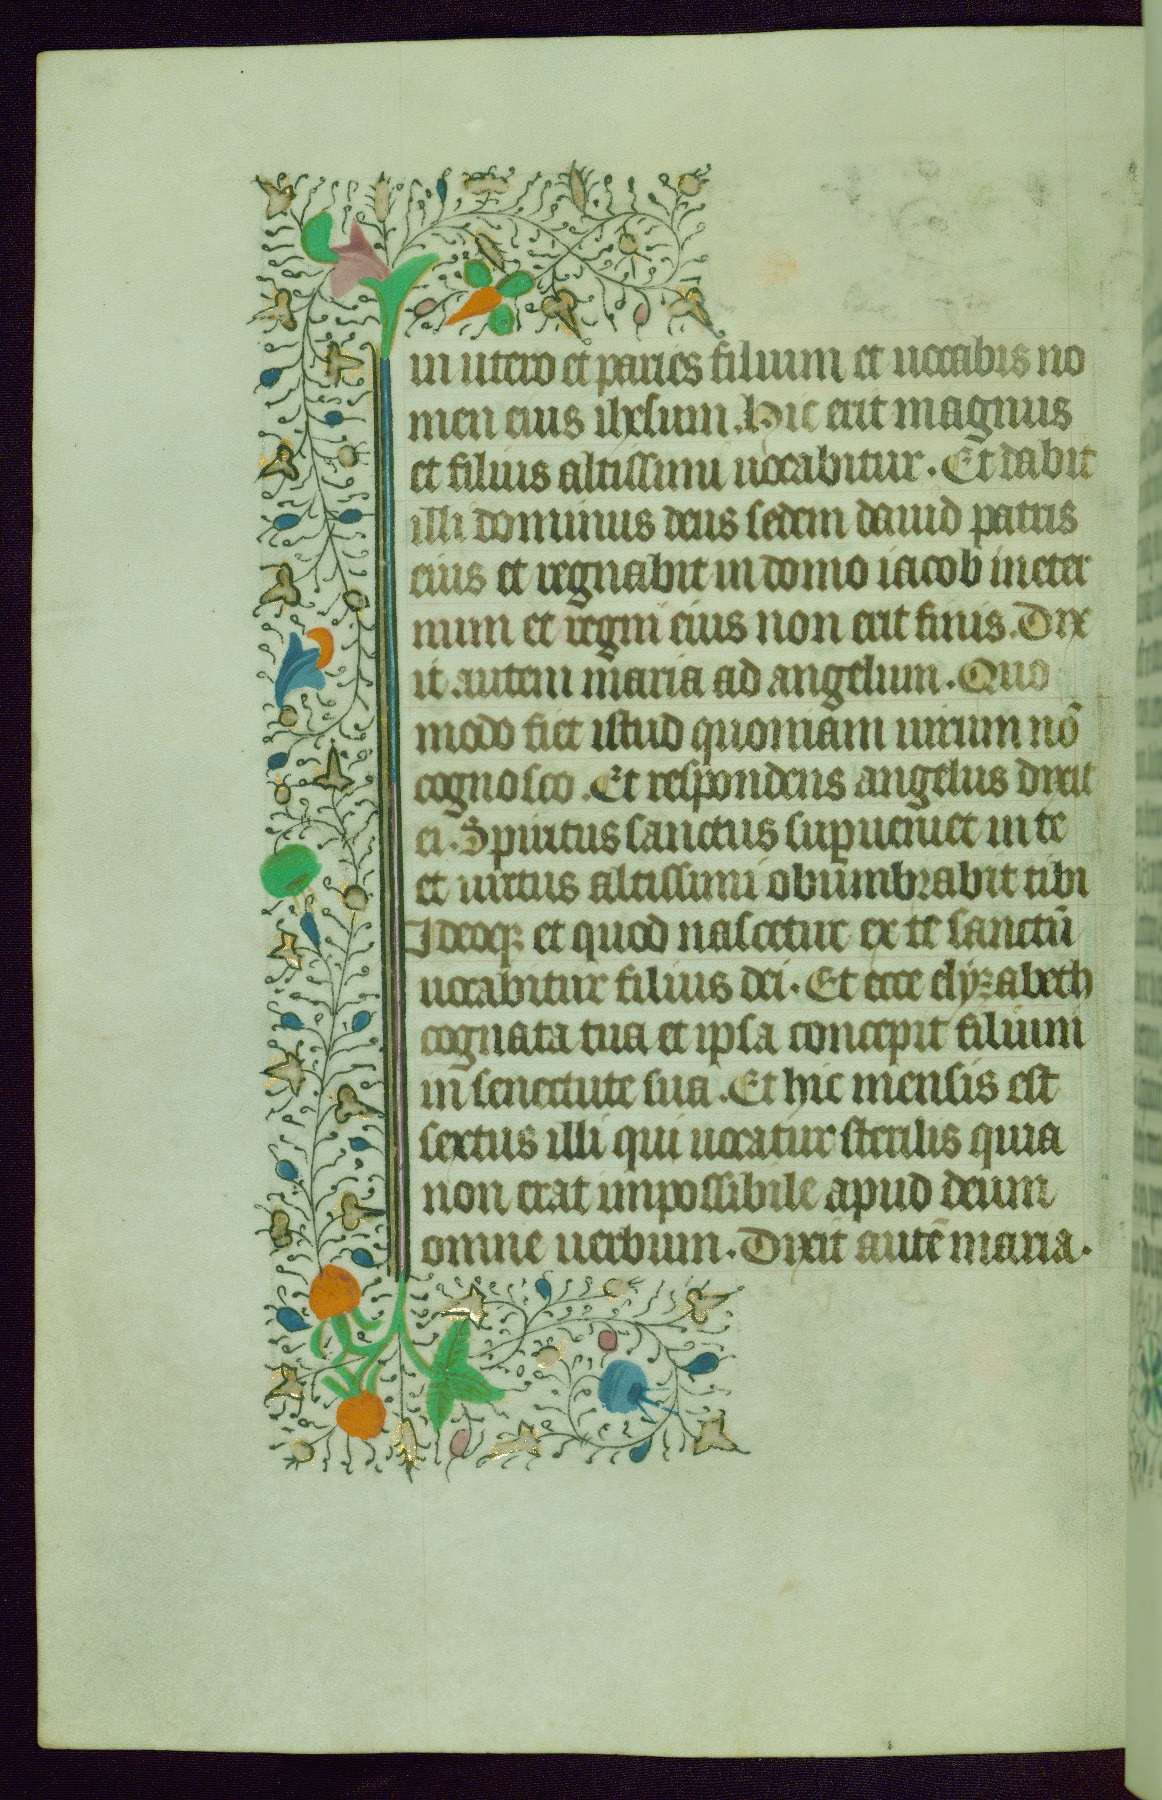 in utero et paries filium et uocabis no
men eius ihesum. Hic erit magnus
et filius altissimi uocabitur. Et dabit
illi dominus deus sedem dauid patris
eius et regnabit in domo iacob in eter
num et regni eius non erit finis. Dix
it autem maria ad angelum. Quo
modo fiet istud quoniam uirum nō
cognosco. Et respondens angelus dixit
ei. Spiritus sanctus supueniet in te
et uirtus altissimi obumbrabit tibi
Ideoqꝫ et quod nascetur ex te sanctū
uocabitur filius dei. Et ecce elyzabeth
cognata tua et ipsa concepit filium
in senectute sua. Et hic mensis est
sextus illi qui uocatur sterilis quia
non erat impossibile apud deum
omne uerbum. Dixit autē maria.